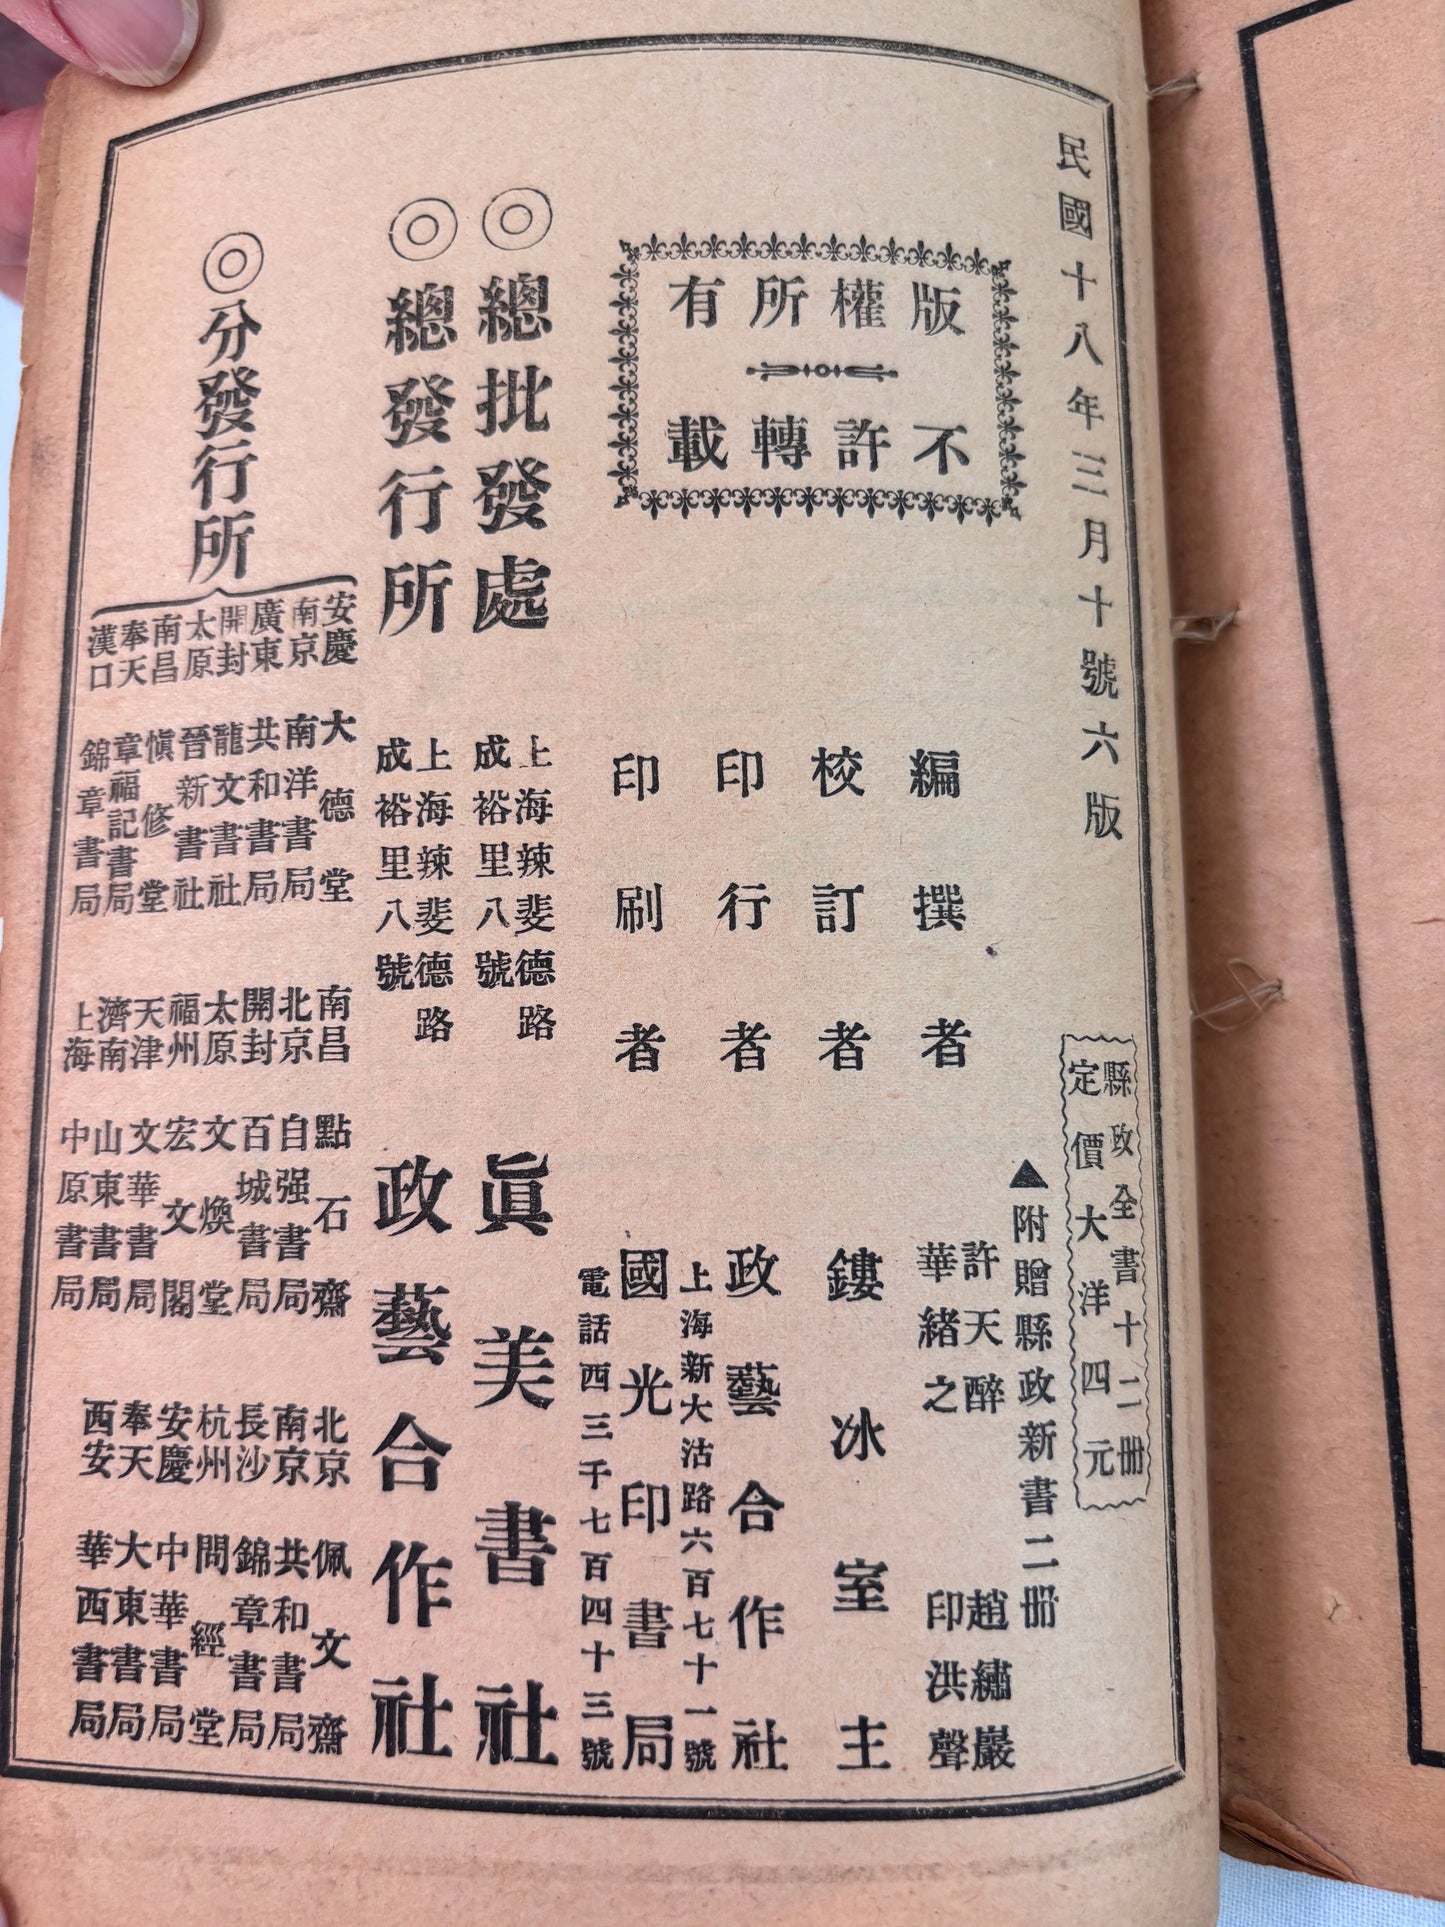 民國十八年三月十號六版
縣政全書十二册
定價大洋四元
▲附贈縣政新書二册
版權所有
不許轉載
編撰者
許天醉
華緒之
趙繡巖
印洪聲
校訂者
鏤冰室主
印行者
政藝合作社
上海新大沽路六百七十一號
印刷者
國光印書局
電話西三千七百四十三號
◎總批發處
上海辣斐德路
成裕里八號
眞美書社
◎總發行所
上海辣斐德路
成裕里八號
政藝合作社
◎分發行所
安慶 大德堂
南京 南洋書局
廣東 共和書局
開封 龍文書社
太原 晉新書社
南昌 愼修堂
奉天 章福記書局
漢口 錦章書局
南昌 點石齋
北京 自强書局
開封 百城書局
太原 文煥堂
福州 宏文閣
天津 文華書局
濟南 山東書局
上海 中原書局
北京 佩文齋
南京 共和書局
長沙 錦章書局
杭州 問經堂
安慶 中華書局
奉天 大東書局
西安 華西書局